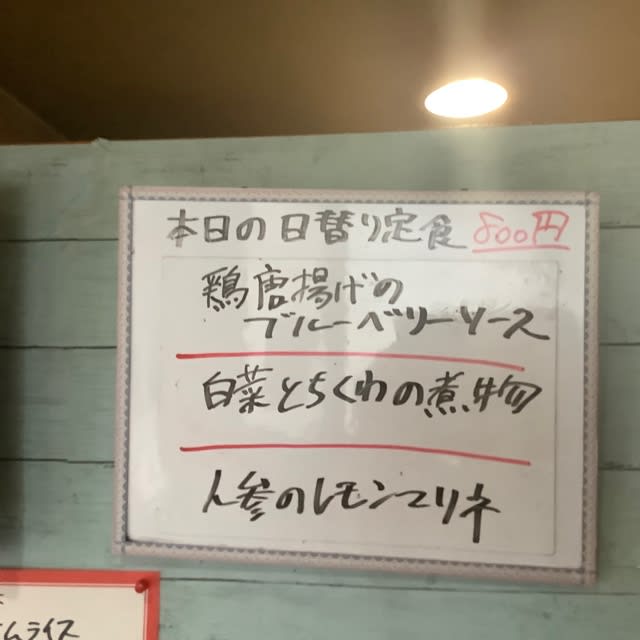 本日の日替り定食 800円
鶏唐揚げの
ブルーベリーソース
白菜とちくわの煮物
人参のレモンマリネ
ムライス